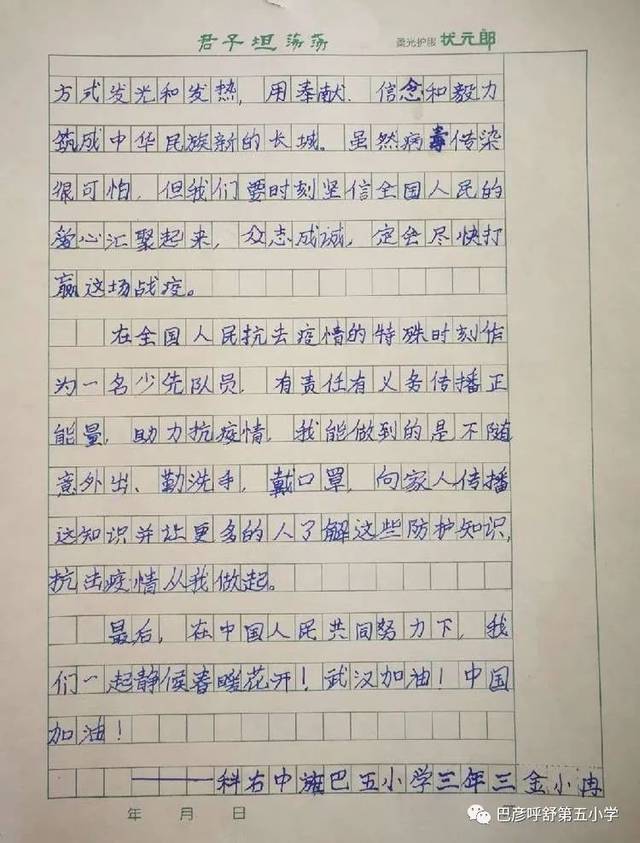 君子坦荡荡 柔光护眼 状元郎
方式发光和发热，用奉献、信念和毅力
筑成中华民族新的长城。虽然病毒传染
很可怕，但我们要时刻坚信全国人民的
爱心汇聚起来，众志成诚，定会尽快打
赢这场战疫。
在全国人民抗击疫情的特殊时刻作
为一名少先队员，有责任有义务传播正
能量，助力抗疫情，我能做到的是不随
意外出、勤洗手，戴口罩，向家人传播
这知识并让更多的人了解这些防护知识，
抗击疫情从我做起。
最后，在中国人民共同努力下，我
们一起静候春暖花开！武汉加油！中国
加油！
——科右中旗巴五小学三年三金小冉
年 月 日
巴彦呼舒第五小学